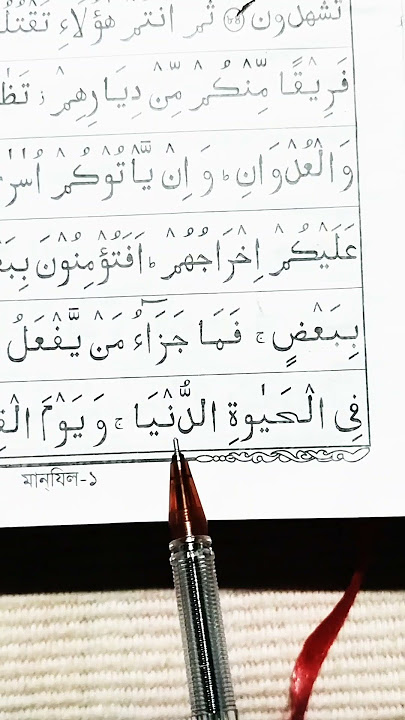 تَشْهَدُونَ ﴿٨٤﴾ ثُمَّ اَنْتُمْ هٰٓؤُلَآءِ
فَرِيْقًا مِّنْكُمْ مِّنْ دِيَارِهِمْ ز
وَالْعُدْوَانِ ط وَاِنْ يَّاْتُوْكُمْ
عَلَيْكُمْ اِخْرَاجُهُمْ ط اَفَتُؤْمِنُوْنَ
بِبَعْضٍ ج فَمَا جَزَآءُ مَنْ يَّفْعَلُ
فِى الْحَيٰوةِ الدُّنْيَا ج وَيَوْمَ
মান্‌যিল-১